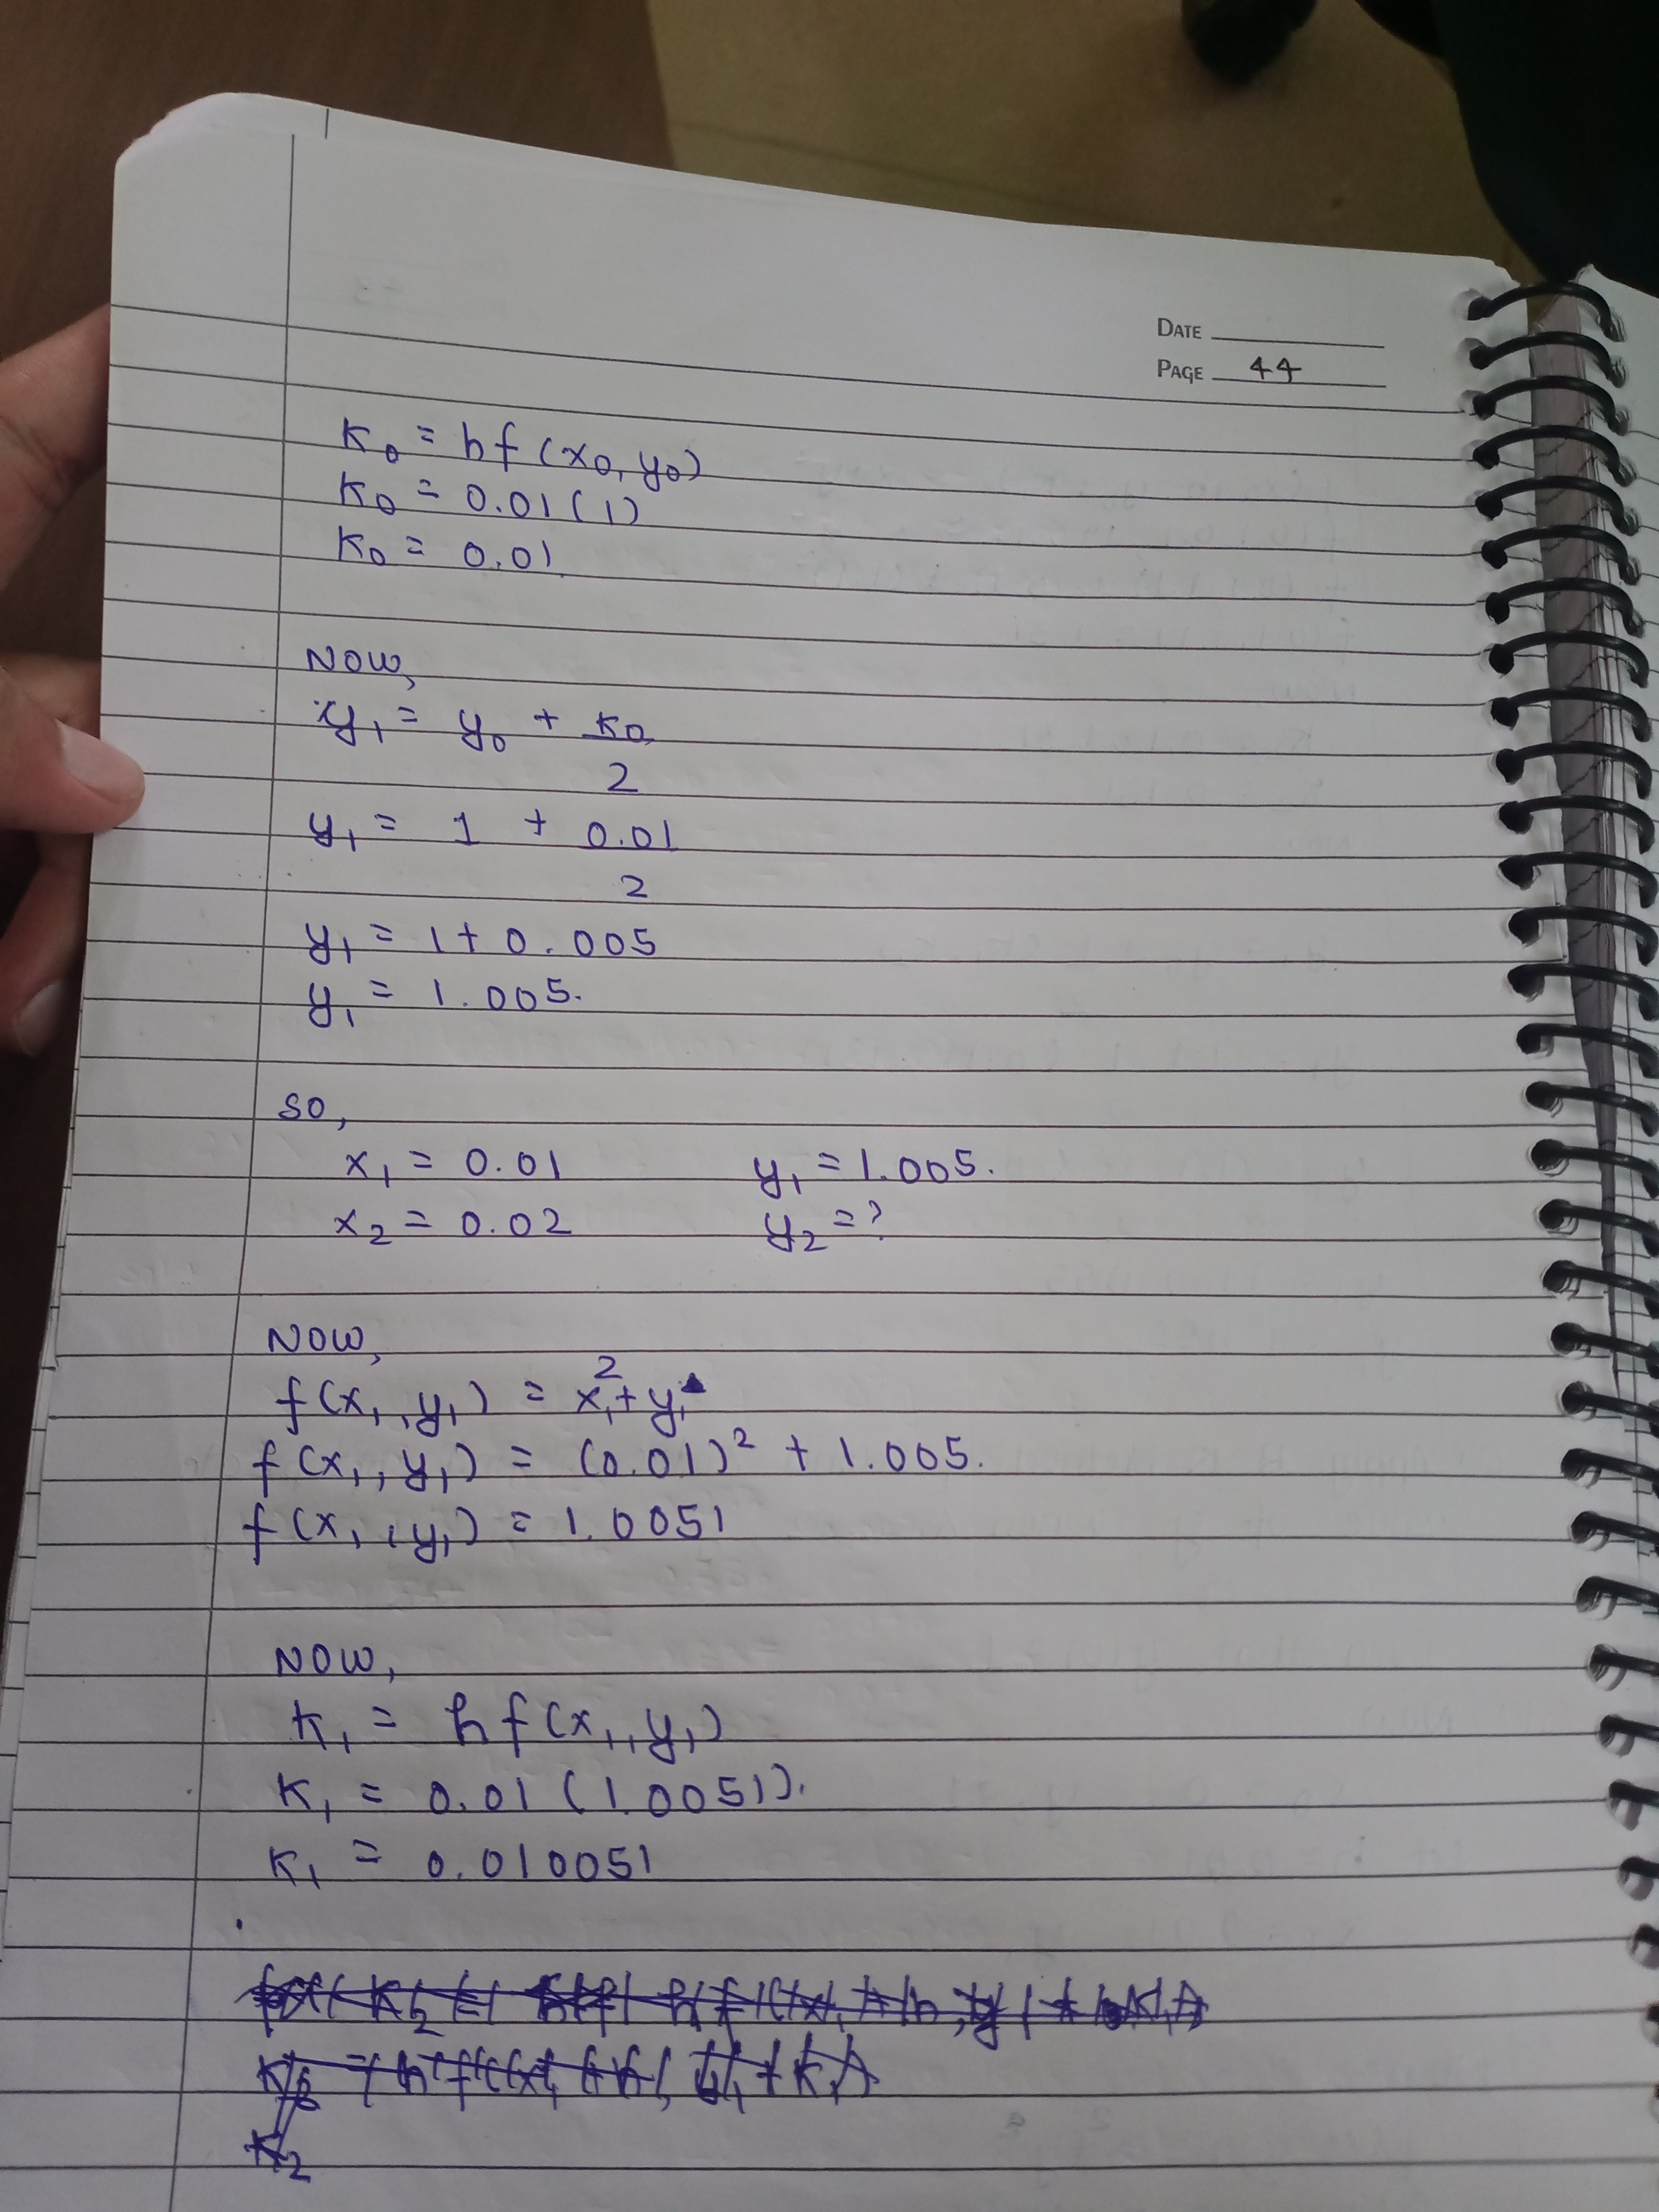 DATE
PAGE 44
K₀ = hf(x₀, y₀)
K₀ = 0.01(1)
K₀ = 0.01
NOW,
y₁ = y₀ + K₀
2
y₁ = 1 + 0.01
2
y₁ = 1 + 0.005
y₁ = 1.005.
SO,
x₁ = 0.01 y₁ = 1.005.
x₂ = 0.02 y₂ = ?
NOW,
f(x₁, y₁) = x₁² + y₁
f(x₁, y₁) = (0.01)² + 1.005.
f(x₁, y₁) = 1.0051
NOW,
K₁ = hf(x₁, y₁)
K₁ = 0.01(1.0051).
K₁ = 0.010051
K₂